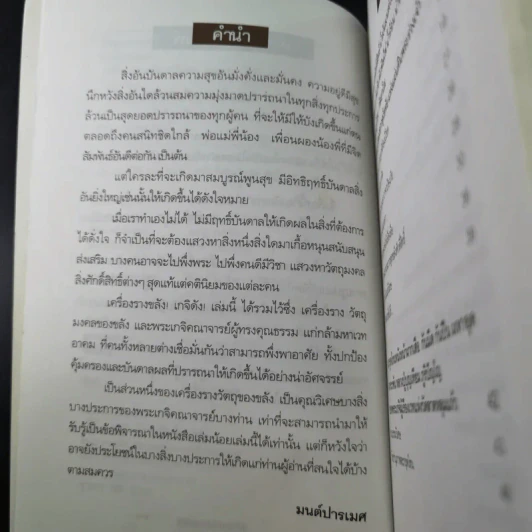 คำนำ
สิ่งอันบันดาลความสุขอันมั่งคั่งและมั่นคง ความอยู่ดีมีสุข
นึกหวังสิ่งอันใดล้วนสมความมุ่งมาดปรารถนาในทุกสิ่งทุกประการ
ล้วนเป็นสุดยอดปรารถนาของทุกผู้คน ที่จะให้มีให้บังเกิดขึ้นแก่ตน
ตลอดถึงคนสนิทชิดใกล้ พ่อแม่พี่น้อง เพื่อนผองน้องพี่ที่มีจิต
สัมพันธ์อันดีต่อกัน เป็นต้น
แต่ใครละที่จะเกิดมาสมบูรณ์พูนสุข มีอิทธิฤทธิ์บันดาลสิ่ง
อันยิ่งใหญ่เช่นนั้นให้เกิดขึ้นได้ดังใจหมาย
เมื่อเราทำเองไม่ได้ ไม่มีฤทธิ์บันดาลให้เกิดผลในสิ่งที่ต้องการ
ได้ดั่งใจ ก็จำเป็นที่จะต้องแสวงหาสิ่งหนึ่งสิ่งใดมาเกื้อหนุนสนับสนุน
ส่งเสริม บางคนอาจจะไปพึ่งพระ ไปพึ่งคนดีมีวิชา แสวงหาวัตถุมงคล
สิ่งศักดิ์สิทธิ์ต่างๆ สุดแท้แต่คตินิยมของแต่ละคน
เครื่องรางขลัง! เกจิดัง! เล่มนี้ ได้รวมไว้ซึ่ง เครื่องราง วัตถุ
มงคลของขลัง และพระเกจิคณาจารย์ผู้ทรงคุณธรรม แก่กล้ามหาเวท
อาคม ที่คนทั้งหลายต่างเชื่อมั่นกันว่าสามารถพึ่งพาอาศัย ทั้งปกป้อง
คุ้มครองและบันดาลผลที่ปรารถนาให้เกิดขึ้นได้อย่างน่าอัศจรรย์
เป็นส่วนหนึ่งของเครื่องรางวัตถุของขลัง เป็นคุณวิเศษบางสิ่ง
บางประการของพระเกจิคณาจารย์บางท่าน เท่าที่จะสามารถนำมาให้
รับรู้เป็นข้อพิจารณาในหนังสือเล่มน้อยเล่มนี้ได้เท่านั้น แต่ก็หวังใจว่า
อาจยังประโยชน์ในบางสิ่งบางประการให้เกิดแก่ท่านผู้อ่านที่สนใจได้บ้าง
ตามสมควร
มนต์ปารเมศ